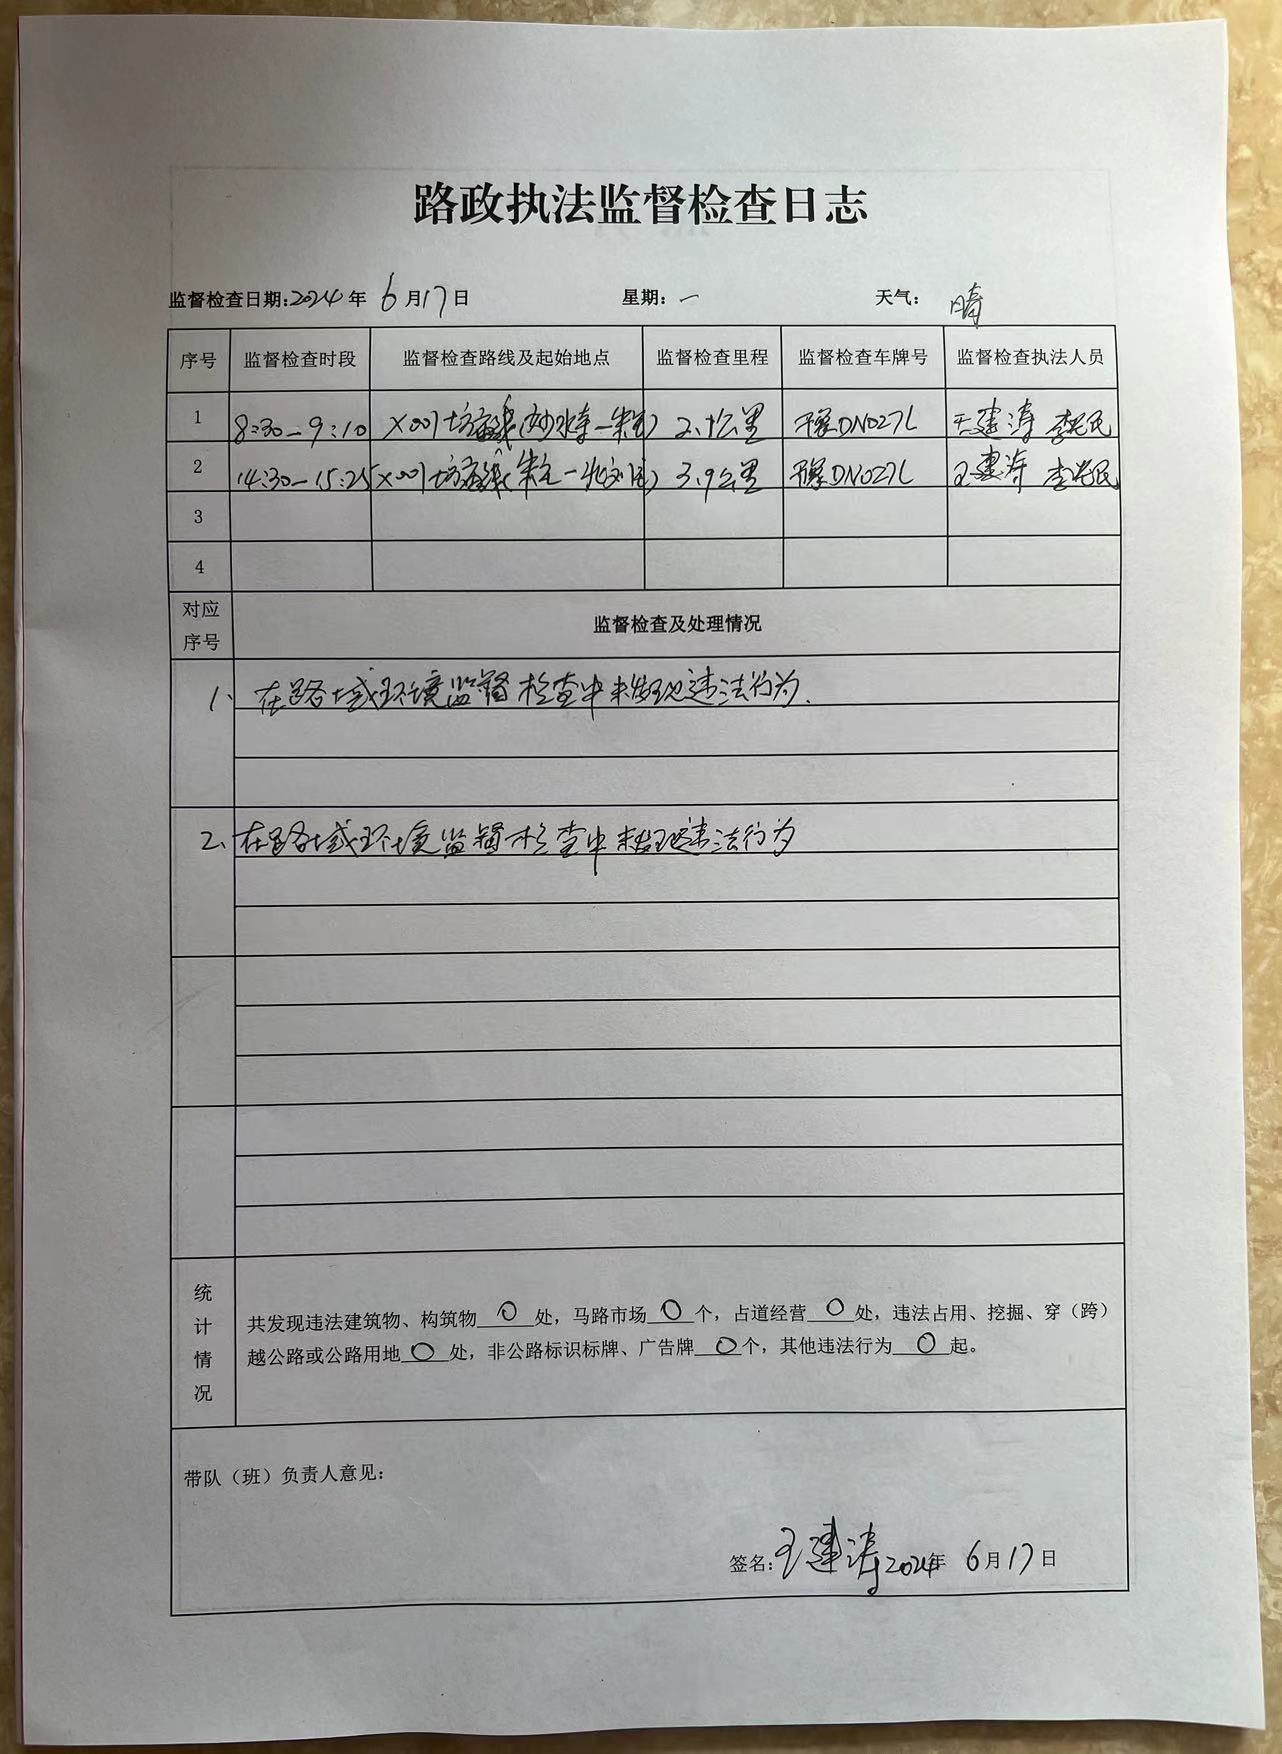 路政执法监督检查日志
监督检查日期:2024年 6月17日 星期:一 天气:晴
序号 监督检查时段 监督检查路线及起始地点 监督检查里程 监督检查车牌号 监督检查执法人员
1 8:30-9:10 X001 (妙水寺-朱) 公里 豫DN027L 王建涛 李 民
2 14:30-15:25 X001 3.9公里 豫DN027L 王建涛 李 民
3
4
对应序号 监督检查及处理情况
1、在路域环境监督检查中未发现违法行为.
2、在路域环境监督检查中未发现违法行为
统计情况
共发现违法建筑物、构筑物 0 处,马路市场 0 个,占道经营 0 处,违法占用、挖掘、穿(跨)
越公路或公路用地 0 处,非公路标识标牌、广告牌 0 个,其他违法行为 0 起。
带队(班)负责人意见:
签名:王建涛 2024年 6月17日